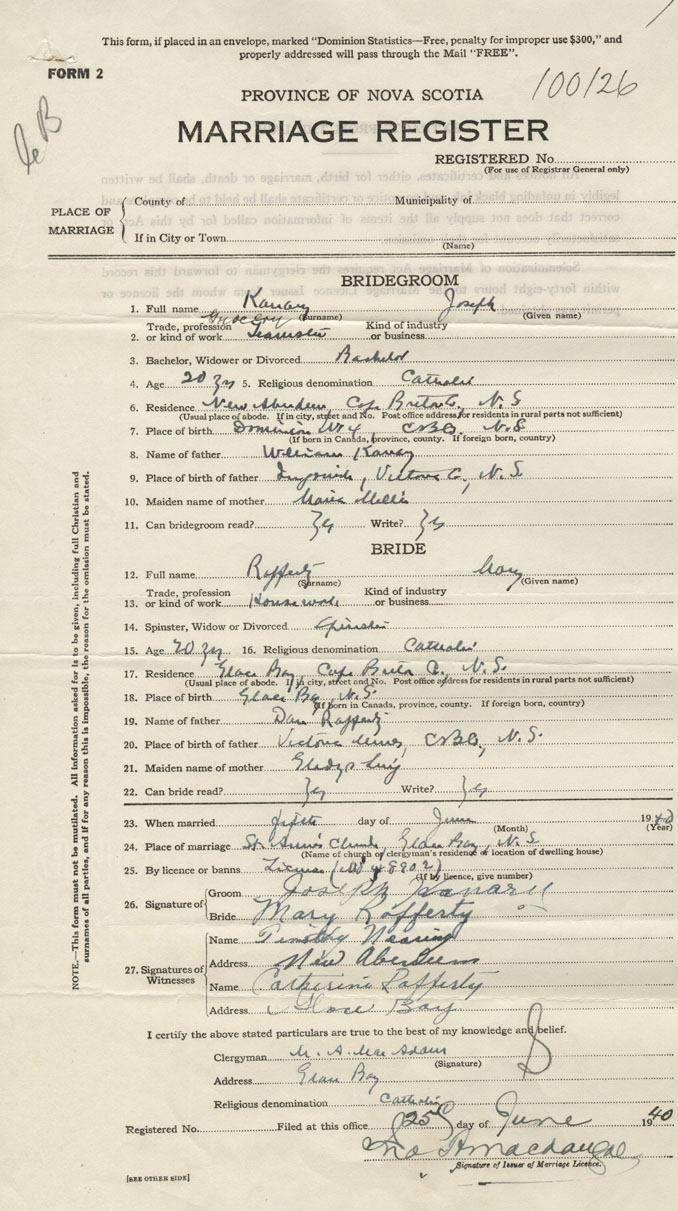 This form, if placed in an envelope, marked "Dominion Statistics—Free, penalty for improper use $300," and
properly addressed will pass through the Mail "FREE".
FORM 2
100126
PROVINCE OF NOVA SCOTIA
MARRIAGE REGISTER
REGISTERED No.
(For use of Registrar General only)
PLACE OF MARRIAGE
County of
Municipality of
If in City or Town
(Name)
BRIDEGROOM
1. Full name Kanary Joseph
(Surname) (Given name)
Trade, profession Grocery Kind of industry
2. or kind of work Teamster or business
3. Bachelor, Widower or Divorced Bachelor
4. Age 20 yrs 5. Religious denomination Catholic
6. Residence New Aberdeen Cape Breton Co, N.S
(Usual place of abode. If in city, street and No. Post office address for residents in rural parts not sufficient)
7. Place of birth Dominion No 4, CBCo, N.S
(If born in Canada, province, county. If foreign born, country)
8. Name of father William Kanary
9. Place of birth of father Ingonish, Victoria Co, N.S.
10. Maiden name of mother
11. Can bridegroom read? Yes Write? Yes
BRIDE
12. Full name Rafferty Mary
(Surname) (Given name)
Trade, profession Kind of industry
13. or kind of work Housework or business
14. Spinster, Widow or Divorced Spinster
15. Age 20 yrs 16. Religious denomination Catholic
17. Residence Glace Bay, Cape Breton C., N.S.
(Usual place of abode. If in city, street and No. Post office address for residents in rural parts not sufficient)
18. Place of birth Glace Bay, N.S.
(If born in Canada, province, county. If foreign born, country)
19. Name of father Dan Rafferty
20. Place of birth of father Victoria Mines, CBCo, N.S.
21. Maiden name of mother Gladys
22. Can bride read? Yes Write? Yes
23. When married fifth day of June 1940
(Month) (Year)
24. Place of marriage St. Ann's Church, Glace Bay, N.S.
(Name of church or clergyman's residence or location of dwelling house)
25. By licence or banns License (No 48902)
(If by licence, give number)
26. Signature of
Groom Joseph Kanary
Bride Mary Rafferty
27. Signatures of Witnesses
Name Timothy Nearing
Address New Aberdeen
Name Catherine Rafferty
Address Glace Bay
I certify the above stated particulars are true to the best of my knowledge and belief.
Clergyman M. A. MacAdam
(Signature)
Address Glace Bay
Religious denomination Catholic
Registered No. Filed at this office 25 day of June 1940
MacDougall
Signature of Issuer of Marriage Licence.
[SEE OTHER SIDE]
NOTE.—This form must not be mutilated. All information asked for is to be given, including full Christian and
surnames of all parties, and if for any reason this is impossible, the reason for the omission must be stated.